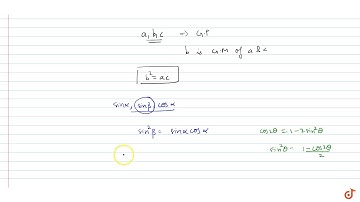 a, b, c → GP
b is G.M of a & c
b² = ac
sinα, sinβ, cosα
sin²β = sinα cosα
cos2θ = 1 - 2sin²θ
sin²θ = 1 - cos2θ / 2